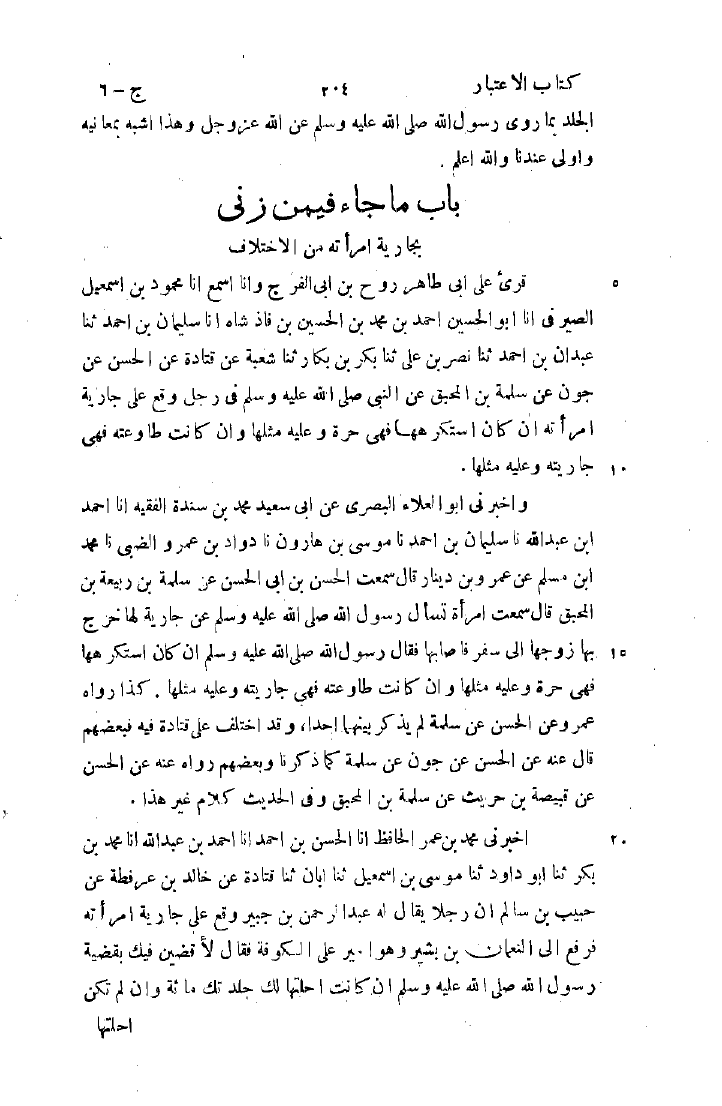 كتاب الاعتبار ٢٠٤ ج - ٦
الجلد بما روى رسول الله صلى الله عليه وسلم عن الله عز وجل وهذا اشبه بمعانيه
واولى عندنا والله اعلم .
باب ما جاء فيمن زنى
بجارية امرأته من الاختلاف
قرئ على ابى طاهر روح بن ابى الفرج وانا اسمع انا محمود بن اسمعيل ٥
الصيرفى انا ابو الحسين احمد بن محمد بن الحسين بن فاذشاه انا سليمان بن احمد ثنا
عبدان بن احمد ثنا نصر بن على ثنا بكر بن بكار ثنا شعبة عن قتادة عن الحسن عن
جون عن سلمة بن المحبق عن النبى صلى الله عليه وسلم فى رجل وقع على جارية
امرأته ان كان استكرهها فهى حرة وعليه مثلها وان كانت طاوعته فهى
جاريته وعليه مثلها . ١٠
واخبرنى ابو العلاء البصرى عن ابى سعيد محمد بن سندة الفقيه انا احمد
ابن عبدالله نا سليمان بن احمد نا موسى بن هارون نا دواد بن عمرو الضبى نا محمد
ابن مسلم عن عمرو بن دينار قال سمعت الحسن بن ابى الحسن عن سلمة بن ربيعة بن
المحبق قال سمعت امرأة تسأل رسول الله صلى الله عليه وسلم عن جارية لها خرج
بها زوجها الى سفر فاصابها فقال رسول الله صلى الله عليه وسلم ان كان استكرهها ١٥
فهى حرة وعليه مثلها وان كانت طاوعته فهى جاريته وعليه مثلها . كذا رواه
عمرو عن الحسن عن سلمة لم يذكر بينهما احدا ، وقد اختلف على قتادة فيه فبعضهم
قال عنه عن الحسن عن جون عن سلمة كما ذكرنا وبعضهم رواه عنه عن الحسن
عن قبيصة بن حريث عن سلمة بن المحبق وفى الحديث كلام غير هذا .
اخبرنى محمد بن عمر الحافظ انا الحسن بن احمد انا احمد بن عبدالله انا محمد بن ٢٠
بكر ثنا ابو داود ثنا موسى بن اسمعيل ثنا ابان ثنا قتادة عن خالد بن عرفطة عن
حبيب بن سالم ان رجلا يقال له عبدالرحمن بن جبير وقع على جارية امرأته
فرفع الى النعمان بن بشير وهو امير على الكوفة فقال لأقضين فيك بقضية
رسول الله صلى الله عليه وسلم ان كانت احلتها لك جلدتك مائة وان لم تكن
احلتها